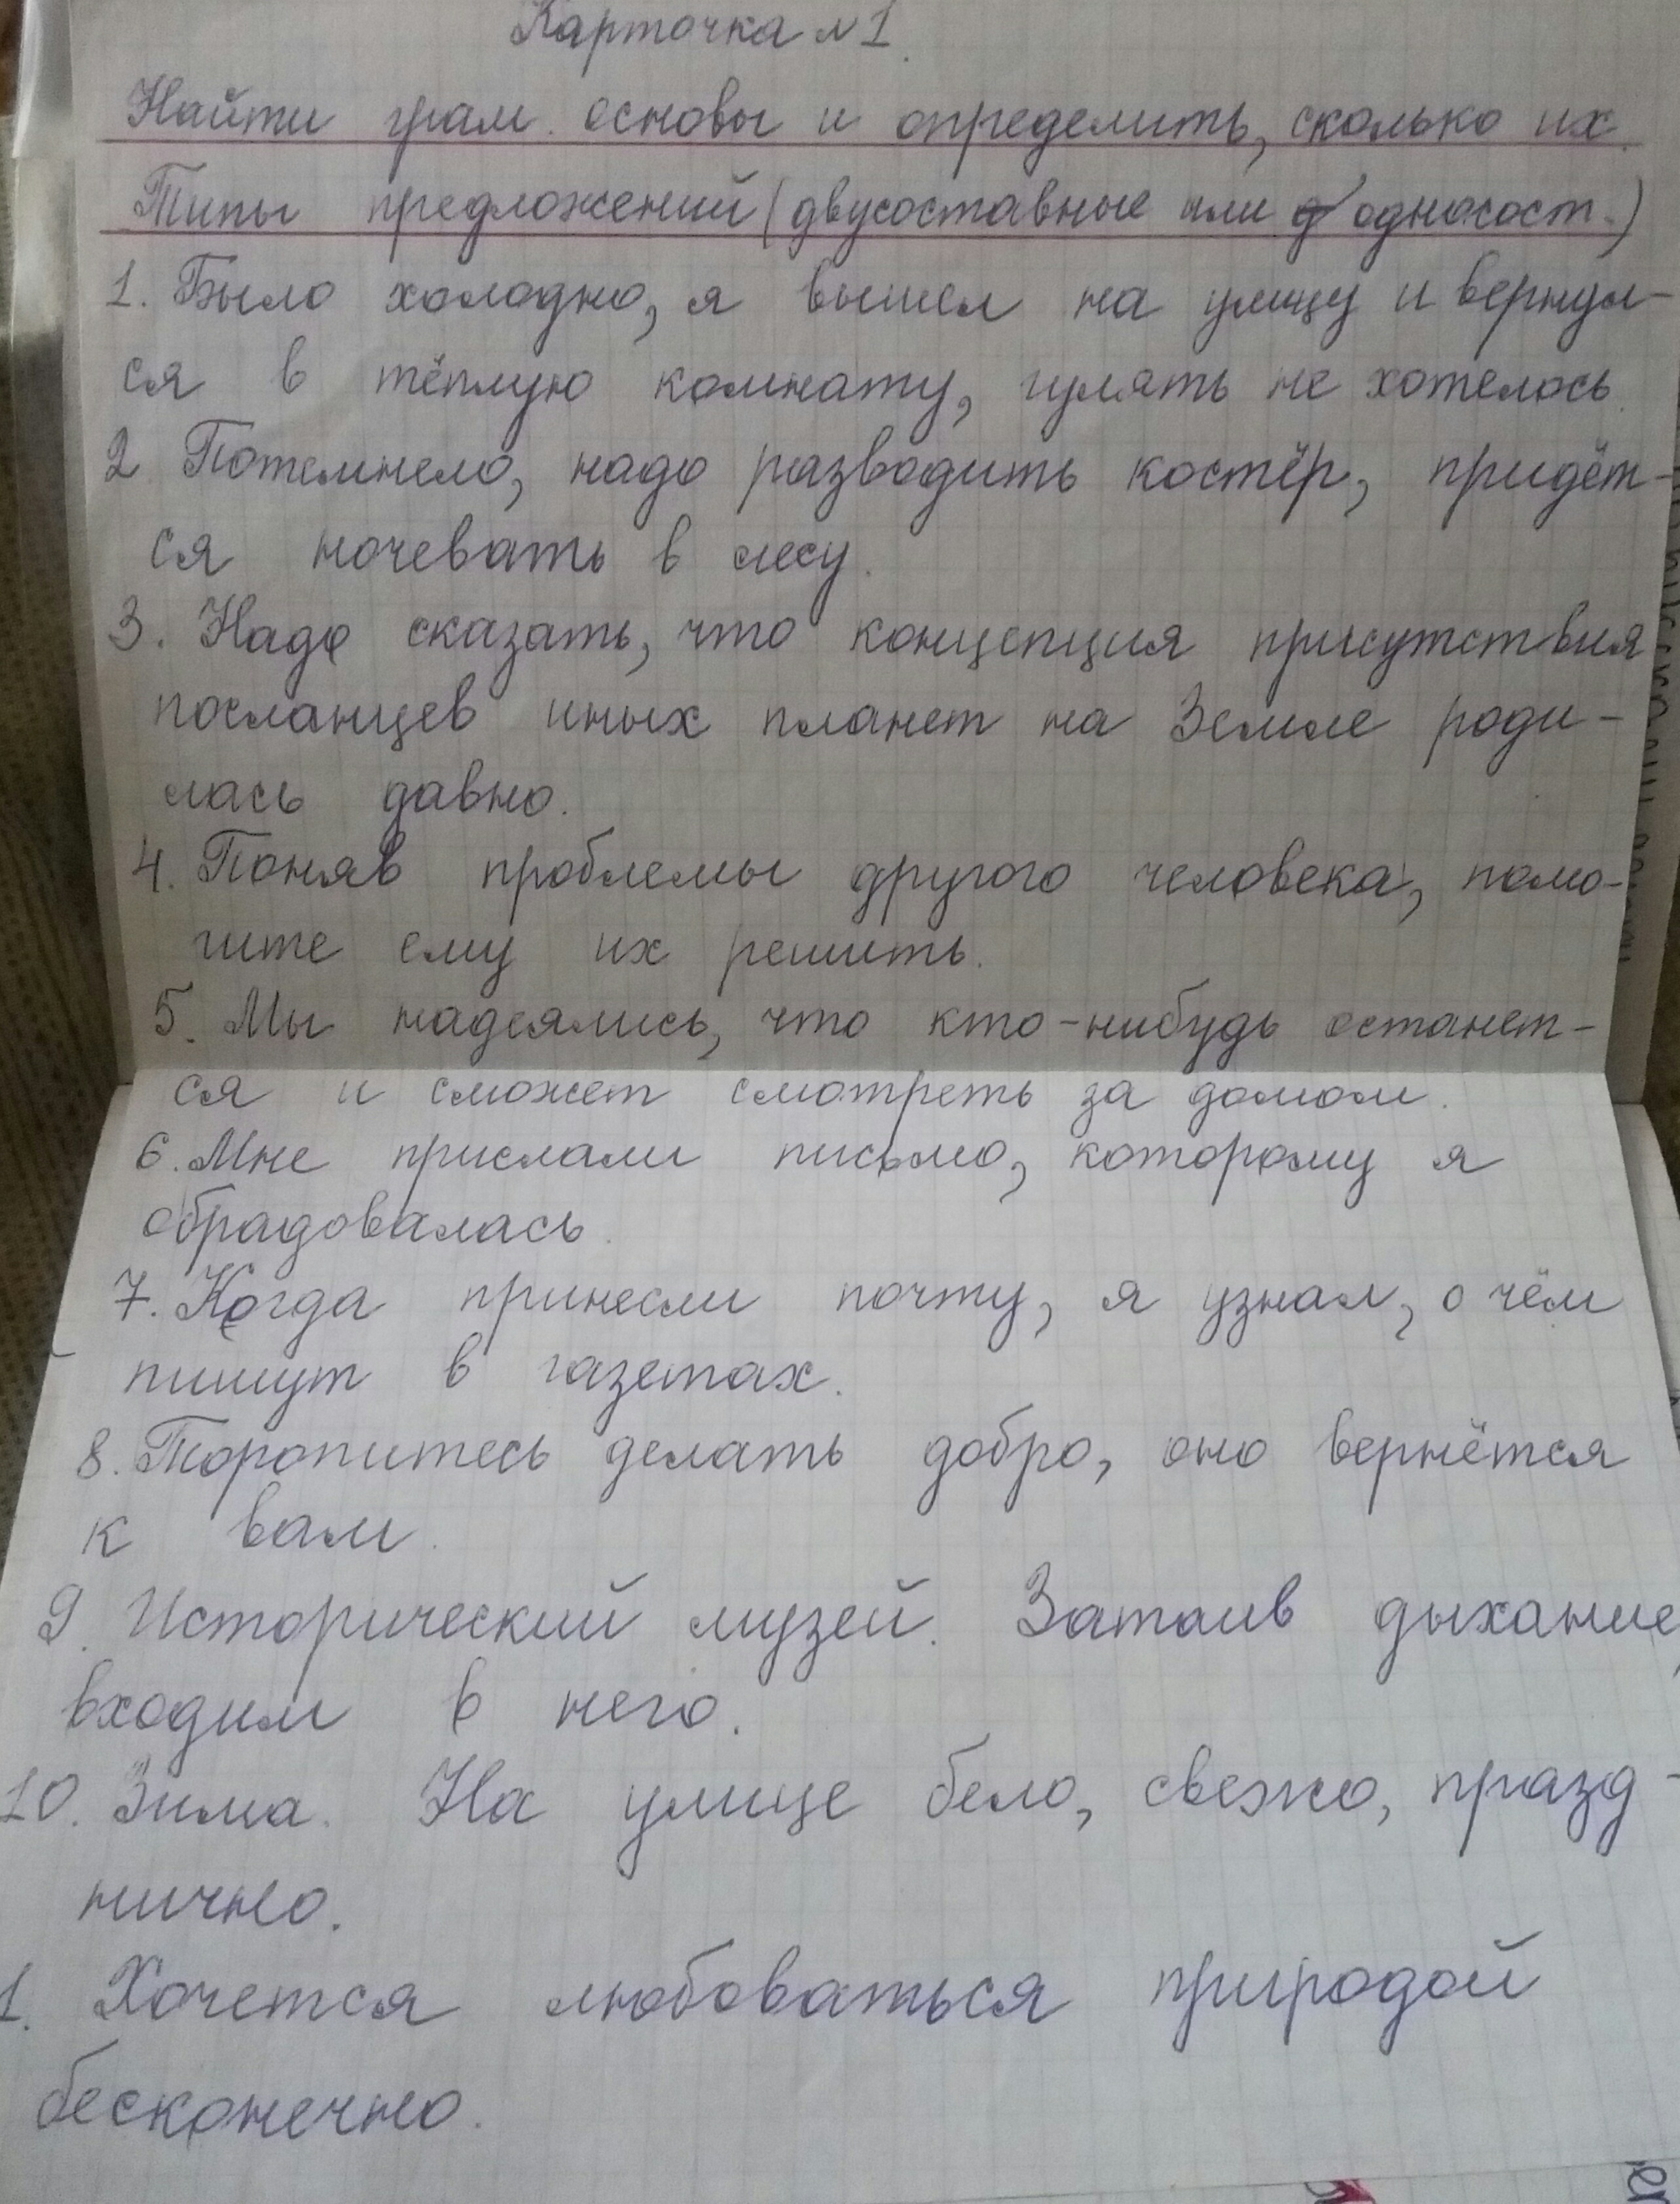 Карточка №1.
Найти грам. основы и определить, сколько их.
Типы предложений (двусоставные или односост.)
1. Было холодно, я вышел на улицу и вернул-
ся в тёплую комнату, гулять не хотелось.
2 Потемнело, надо разводить костёр, придёт-
ся ночевать в лесу.
3. Надо сказать, что концепция присутствия
посланцев иных планет на Земле роди-
лась давно.
4. Поняв проблемы другого человека, помо-
гите ему их решить.
5. Мы надеялись, что кто-нибудь останет-
ся и сможет смотреть за домом.
6. Мне прислали письмо, которому я
обрадовалась.
7. Когда принесли почту, я узнал, о чём
пишут в газетах.
8. Торопитесь делать добро, оно вернётся
к вам.
9. Исторический музей. Затаив дыхание,
входим в него.
10. Зима. На улице бело, свежо, празд-
нично.
1. Хочется любоваться природой
бесконечно.